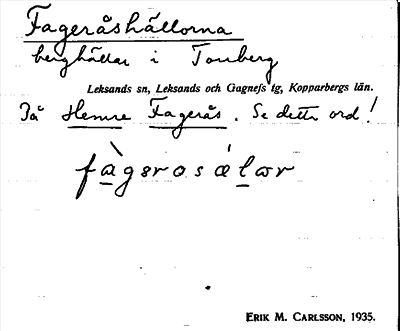 Fageråshällorna
berghällar i Tunberg
Leksands sn, Leksands och Gagnefs tg, Kopparbergs län.
På Hemre Fagerås. Se detta ord!
fàgərosálar
ERIK M. CARLSSON, 1935.